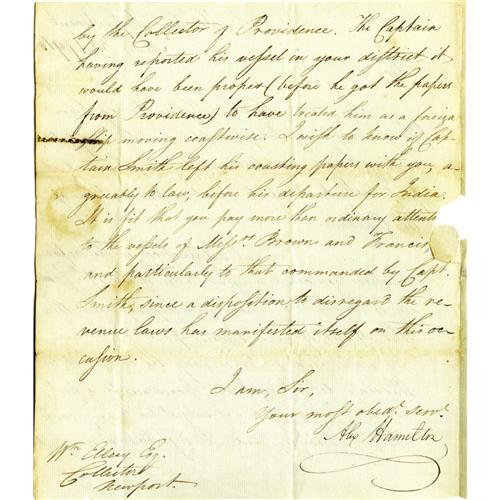 by the Collector of Providence. The Captain
having reported his vessel in your district it
would have been proper (before he got the papers
from Providence) to have treated him as a foreign
ship moving coastwise. I wish to know if Cap-
tain Smith left his coasting papers with you, a-
greeably to law, before his departure for India.
It is fit that you pay more than ordinary attenti
to the vessels of Messrs Brown and Francis
and particularly to that commanded by Capt.
Smith, since a disposition to disregard the re-
venue laws has manifested itself on this oc-
casion.
I am, Sir,
Your most obedt. servt.
Alex Hamilton
Wm Ellery Esq.
Collector
Newport.